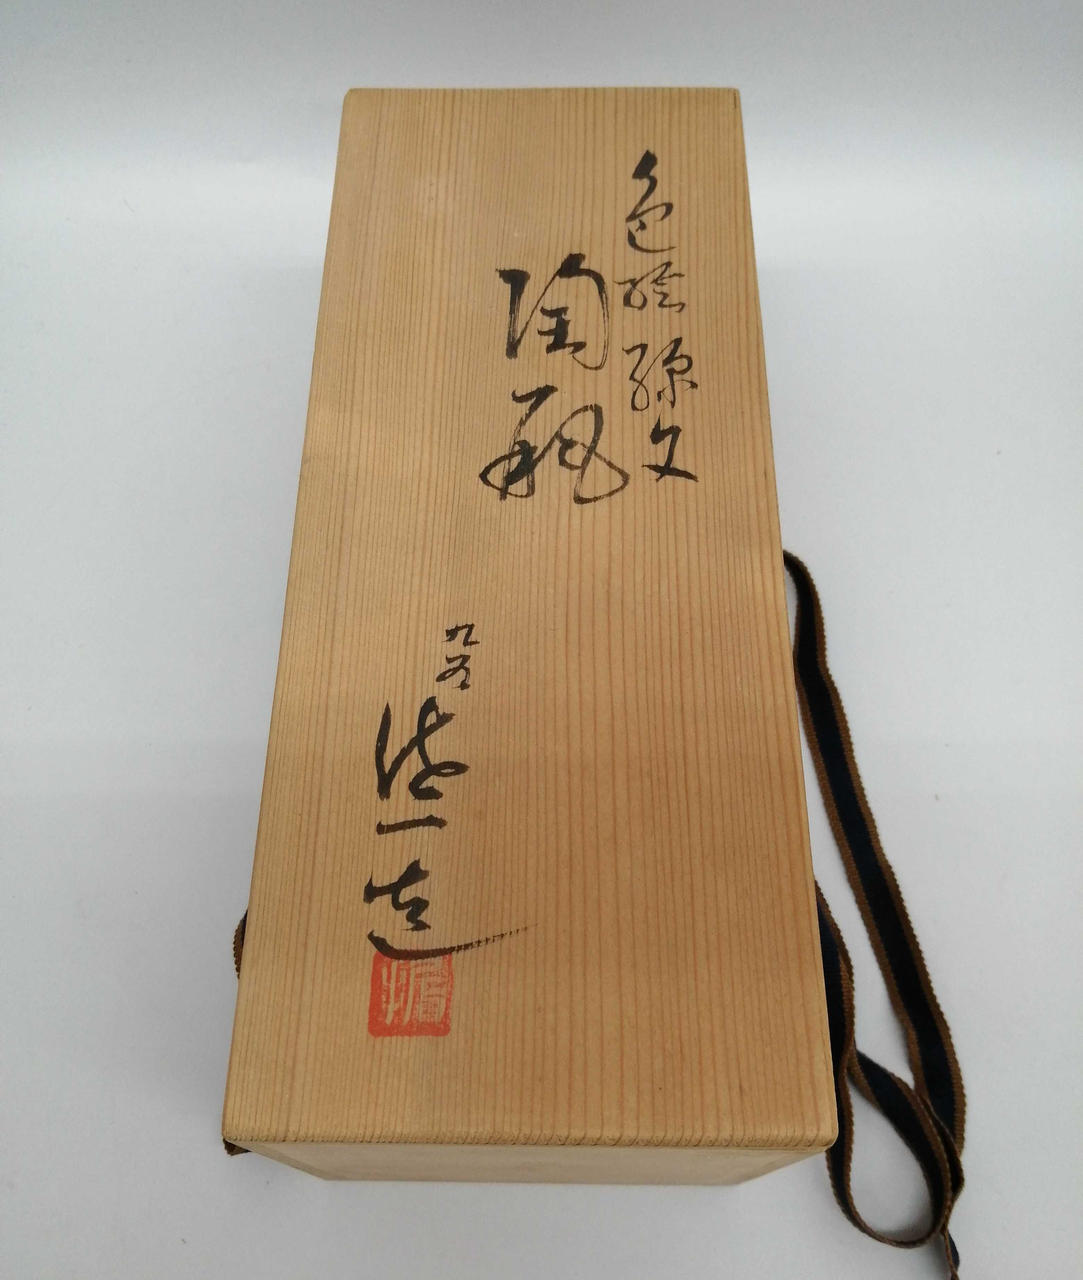 色絵線文
陶瓶
九谷
一造